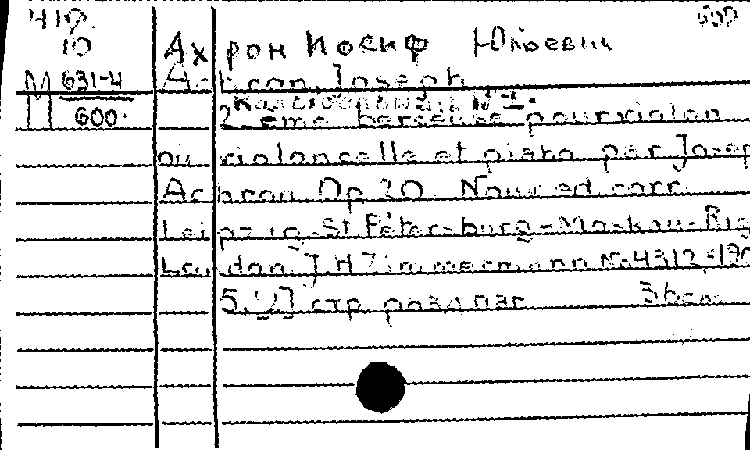 419.
10
Ахрон Иосиф Юльевич
М 631-4
600.
Achron, Joseph
Колыбельная № 2.
2-ème berceuse pour violon
ou violoncelle et piano par Josep
Achron. Op 20. Nouv. ed. corr.
Leipzig-St Péters-burg-Moskau-Rig
London. J. H. Zimmermann № 4312.-190
5. [2] стр. разд паг.